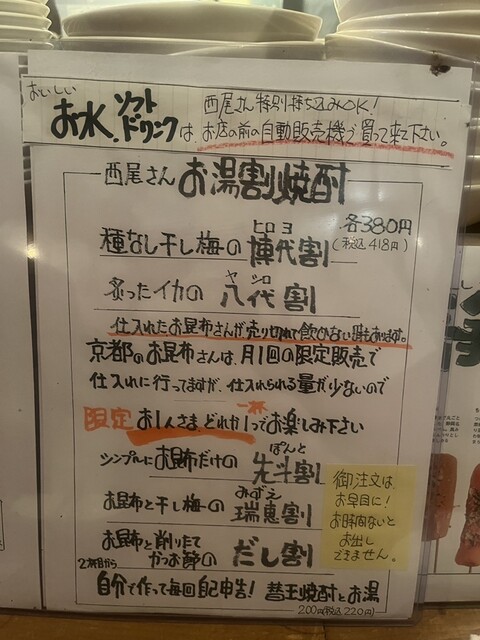 おいしい
お水、ソフトドリンクは、
西尾さん特別持ち込みOK！
お店の前の自動販売機で買って来て下さい。
西尾さん お湯割焼酎
各380円
(税込418円)
種なし干し梅の 博代割
ヒロヨ
炙ったイカの 八代割
ヤシロ
仕入れたお昆布さんが売り切れて飲めない時もあります。
京都のお昆布さんは、月1回の限定販売で
仕入れに行ってますが、仕入れられる量が少ないので
限定 お1人さま、どれか1つでお楽しみ下さい
一杯
シンプルにお昆布だけの 先斗割
ぽんと
お昆布と干し梅の 瑞恵割
みずえ
お昆布と削りたて
かつお節の だし割
2杯目から
自分で作って毎回自己申告！ 替玉焼酎とお湯
200円(税込220円)
御注文は
お早目に！
お時間ないと
お出し
できません。